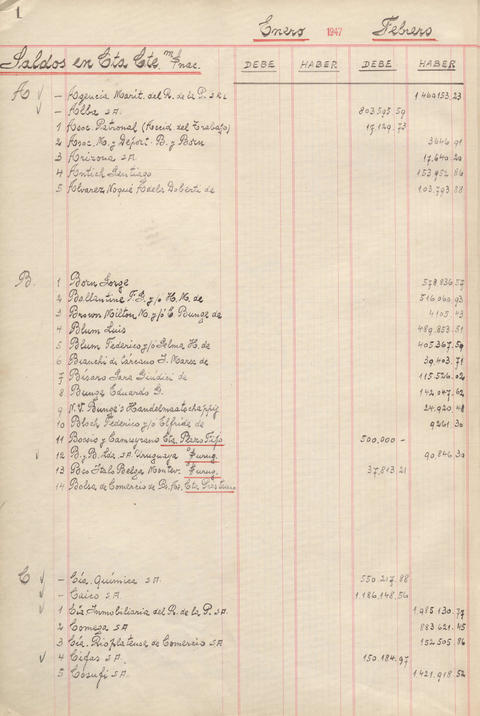 1
Enero 1947 Febrero
Saldos en Cta Cte. m/nac. DEBE HABER DEBE HABER
A ✓ — Agencia Marit. del R. de la P. S.R.L 1.460.153.23
✓ — Alba S.A. 803.595.59
1 Asoc. Patronal (Accid. del Trabajo) 17.129.73
2 Asoc. N. y Deport. B. y Born 3.646.91
3 Arizona S.A. 17.640.20
4 Antich Santiago 153.952.86
5 Alvarez Noqué Adela Doberti de 103.793.88
B. 1 Born Jorge 578.836.57
2 Ballantine F.G. y/o H.M. de 516.060.93
3 Brown Milton N. y/o C. Bunge de 4.105.43
4 Blum Luis 489.853.51
5 Blum Federico y/o Selma H. de 405.367.59
6 Bianchi di Cárcano I. Marez de 39.403.71
7 Bésaro Sara Giúdici de 115.526.02
8 Bunge Eduardo G. 142.047.62
9 N.V. Bunge's Handelmaatschappij 24.920.48
10 Bloch Federico y/o Elfride de 9.261.30
11 Bossio y Camuyrano Cta. Plazo Fijo 500.000 —
✓ 12 B. y B. Ltda. S.A. Uruguaya o$urug. 90.846.30
13 Bco Italo Belga Montev. o$urug. 37.813.21
14 Bolsa de Comercio de Bs. As. Cta Préstamo
C ✓ — Cía. Química S.A. 550.217.88
✓ — Cairo S.A. 1.186.148.56
✓ 1 Cía Inmobiliaria del R. de la P. S.A. 1.985.130.77
2 Comega S.A. 883.621.45
3 Cía. Rioplatense de Comercio S.A. 152.505.86
✓ 4 Cifas S.A. 150.184.97
5 Cosufi S.A. 1.421.918.52